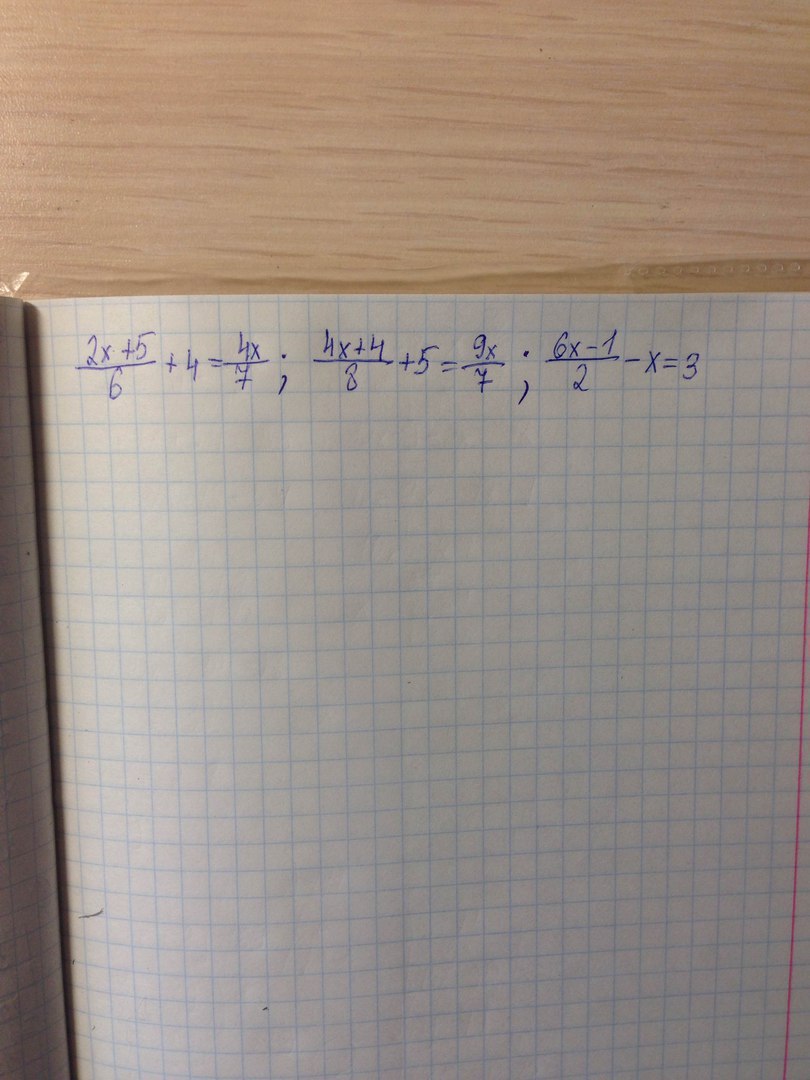 (2x+5)/6 + 4 = 4x/7 ; (4x+4)/8 + 5 = 9x/7 ; (6x-1)/2 - x = 3